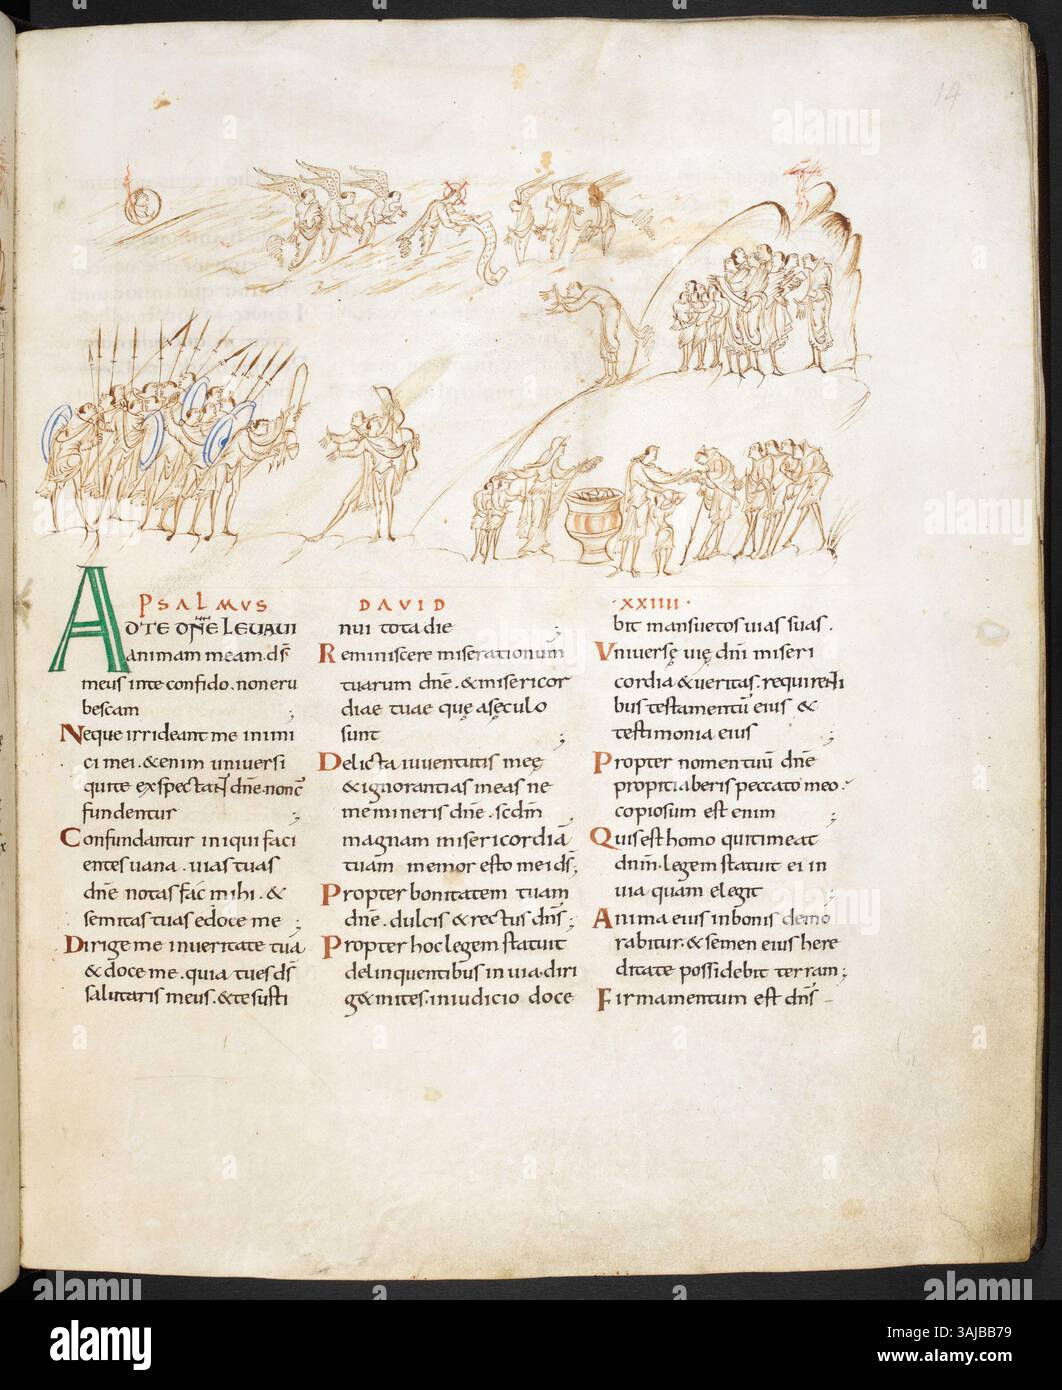 14
PSALMVS DAVID ·XXIIII·
ADTE DÑE LEUAUI
animam meam. d̄s
meus inte confido. non eru
bescam ;
Neque irrideant me inimi
ci mei. &enim uniuersi
qui te exspectant dñe. non c̄
fundentur ;
Confundantur iniqui faci
entes uana. uias tuas
dñe notas fac mihi. &
semitas tuas edoce me ;
Dirige me inueritate tua
& doce me. quia tu es d̄s
saluitaris meus. & te susti
nui tota die ;
Reminiscere miserationum
tuarum dñe. & misericor
diae tuae quę aseculo
sunt ;
Delicta iuuentutis meę
& ignorantias meas ne
memineris dñe. scdm̄
magnam misericordiā
tuam memor esto mei d̄s;
Propter bonitatem tuam
dñe. dulcis & rectus dñs;
Propter hoc legem statuit
delinquentibus in uia. diri
g& mites. in iudicio doce
bit mansuetos uias suas.
Vniuersę uię dñi miseri
cordia & ueritas. requirenti
bus testamentū eius &
testimonia eius ;
Propter nomen tuū dñe
propitiaberis peccato meo.
copiosum est enim
Quis est homo qui timeat
dnm̄. legem statuit ei in
uia quam elegit ;
Anima eius in bonis demo
rabitur. & semen eius here
ditate possidebit terram;
Firmamentum est dñs
alamy
Image ID: 3AJBB79
www.alamy.com